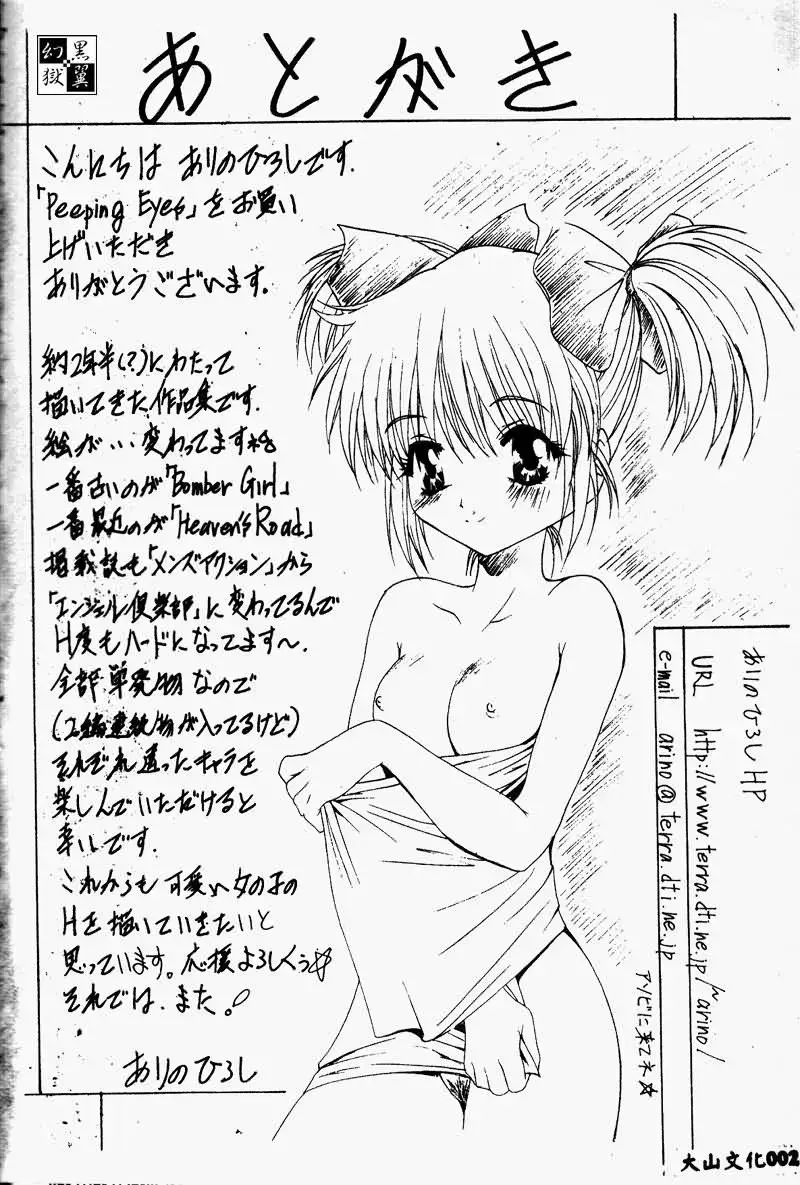 幻獄
黒翼
あとがき
こんにちは ありのひろしです.
「Peeping Eyes」をお買い
上げいただき
ありがとうございます。
約2年半(?)にわたって
描いてきた作品集です.
絵が‥変わってますネ
一番古いのが「Bomber Girl」
一番最近のが「Heaven's Road」
掲載誌も「メンズアクション」から
「エンジェル倶楽部」に変わってるんで
H度もハードになってます〜.
全部単発物なので
(2編連続物が入ってるけど)
それぞれ違ったキャラを
楽しんでいただけると
幸いです.
これからも可愛い女の子の
Hを描いていきたいと
思っています。応援よろしくぅ☆
それでは、また。
ありのひろし
ありのひろしHP
URL http://www.terra.dti.ne.jp/~arino/
e-mail arino@terra.dti.ne.jp
アソビに来てネ☆
大山文化002